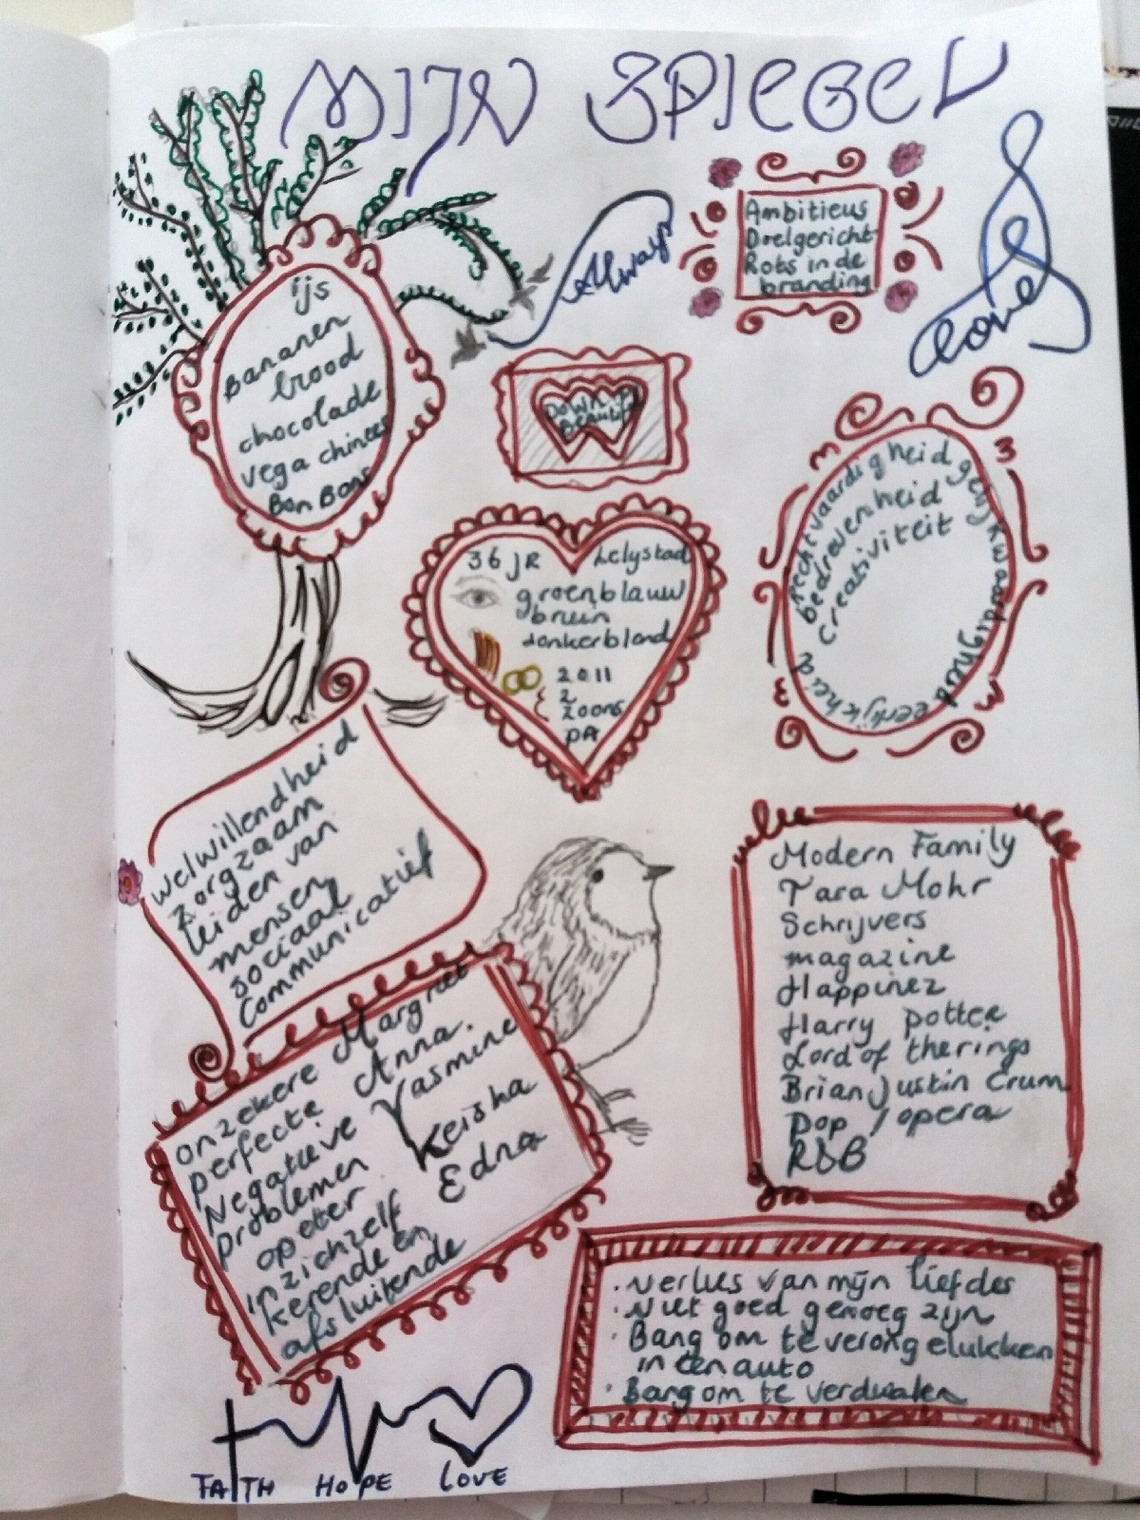 MIJN SPIEGEL
ijs
Bananen
brood
chocolade
vega chinees
Bon Bons
Always
Ambitieus
Doelgericht
Rots in de
branding
Love
DOWN
BEAUTIF
36 JR
Lelystad
groenblauw
bruin
donkerblond
2011
2
zoons
PA
rechtvaardigheid gelijkwaardigheid eerlijkheid
bedrevenheid
creativiteit
welwillendheid
zorgzaam
leiden van
mensen
sociaal
communicatief
onzekere
perfecte
Negatieve
problemen
opeter
in zichzelf
kerende en
afsluitende
Margriet
Anna.
Yasmine
Keisha
Edna
Modern Family
Tara Mohr
Schrijvers
magazine
Happinez
Harry potter
Lord of the rings
Brian Justin Crum
pop / opera
R&B
· Verlies van mijn liefdes
· Niet goed genoeg zijn
· Bang om te verongelukken
in een auto
· Bang om te verdwalen
FAITH HOPE LOVE